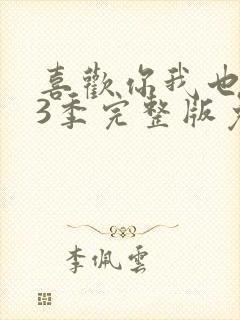 喜歡你我也
3季完整版
李佩雲